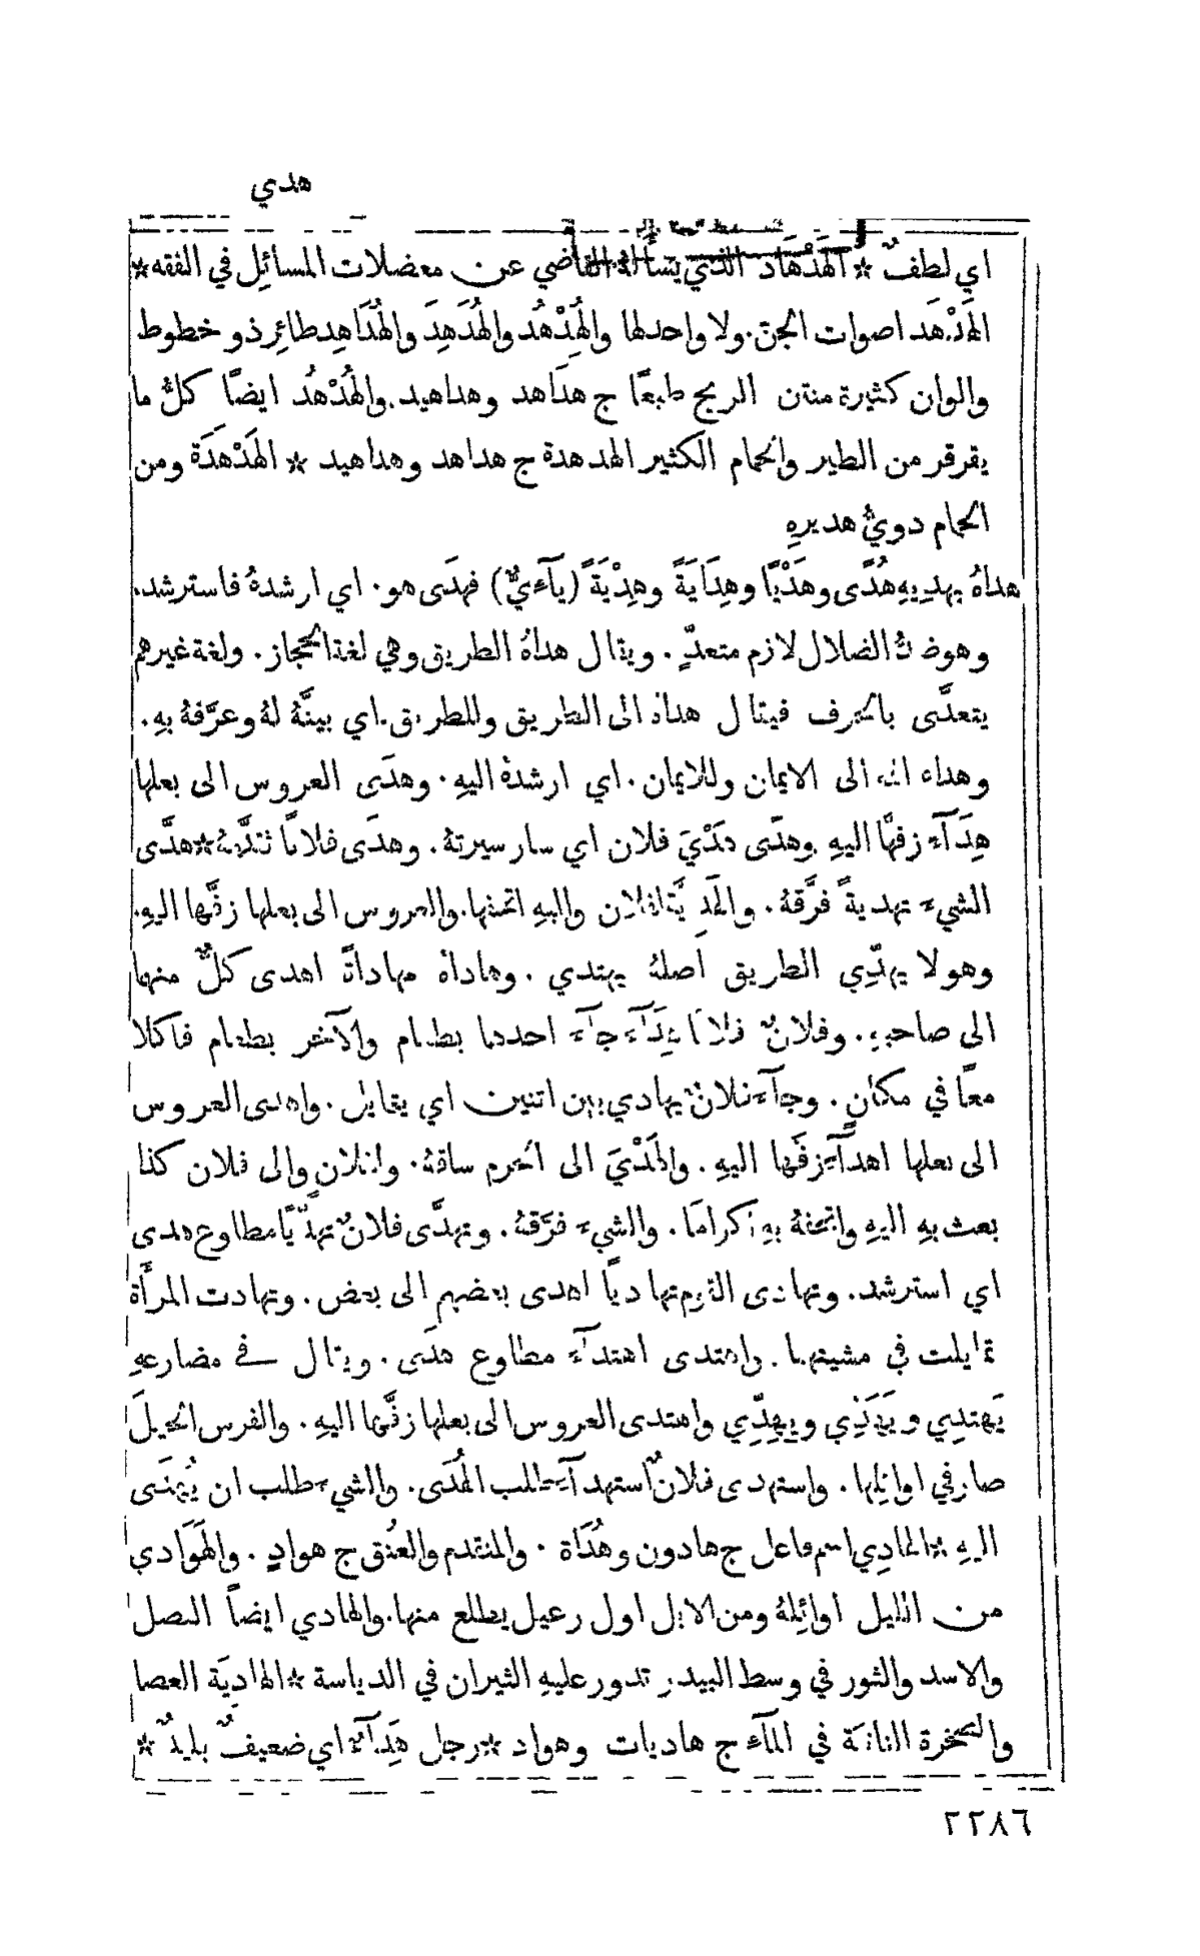 هدي
اي لطفٌ * الهَدْهَاد الذي يسألهُ القاضي عن معضلات المسائِل في الفقه *
الهَدْهَد اصوات الجن. ولا واحد لها والهُدْهُد والهُدَهِدَ والهُدَاهِد طائِر ذو خطوط
والوان كثيرة منتن الريح طبعًا ج هدَاهد وهداهيد. والهُدْهُد ايضًا كلُّ ما
يقرقر من الطير والحمام الكثير الهدهدة ج هداهد وهداهيد * الهَدْهَدَة ومن
الحمام دويُّ هديرهِ
هداهُ يهديهِ هُدًى وهَدْيًا وهِدَايَةً وهِدْيَةً (يآءيٌّ) فهدَى هو. اي ارشدهُ فاسترشد.
وهو ضدُّ الضلال لازم متعدٍّ. ويقال هداهُ الطريق وهي لغة الحجاز. ولغة غيرهم
يتعدَّى بالحرف فيقال هداهُ الى الطريق وللطريق. اي بينَّهُ لهُ وعرَّفهُ بهِ.
وهداه الله الى الايمان وللايمان. اي ارشدهُ اليهِ. وهدَى العروس الى بعلها
هِدَآءً زفَّها اليهِ وهدَى هَدْيَ فلان اي سار سيرتهُ. وهدَى فلانًا تقدَّمهُ * هدَّى
الشيءَ تهديةً فرَّقهُ. والهَدِيَّة لفلان واليهِ اتحفها. والعروس الى بعلها زفَّها اليهِ.
وهو لا يهدِّي الطريق اصلهُ يهتدي. وهاداهُ مهاداةً اهدى كلٌّ منهما
الى صاحبهِ. وفلانٌ فلانًا هِدَآءً جآءَ احدهما بطعام والآخر بطعام فاكلا
معًا في مكانٍ. وجآءَ فلانٌ يهادي بين اثنين اي يتمايل. واهدى العروس
الى بعلها اهدآءً زفَّها اليهِ. والهَدْيَ الى الحرم ساقهُ. ولفلانٍ والى فلان كذا
بعث بهِ اليهِ واتحفهُ بهِ اكرامًا. والشيءَ فرَّقهُ. وتهدَّى فلانٌ تهدِّيًا مطاوع هدى
اي استرشد. وتهادى القوم تهاديًا اهدى بعضهم الى بعض. وتهادت المرأَة
تمايلت في مشيتها. واهتدى اهتدآءً مطاوع هدَى. ويقال في مضارعهِ
يَهتدِي ويَهَدِّي ويَهِدِّي واهتدى العروس الى بعلها زفَّها اليهِ. والفرس الخيلَ
صار في اوائِلها. واستهدى فلانٌ استهدآءً طلب الهُدَى. والشيءَ طلب ان يُهدَى
اليهِ * الهادِي اسم فاعل ج هادون وهُدَاة. والمتقدم والعُنُق ج هوادٍ. والهَوَادي
من الليل اوائِلهُ ومن الابل اول رعيل يطلع منها. والهادي ايضًا النصل
والاسد والثور في وسط البيدر تدور عليهِ الثيران في الدياسة * الهاديَة العصا
والصخرة الناتئة في المآءِ ج هاديات وهواد * رجل هِدَآءٌ اي ضعيفٌ بليدٌ *
٢٢٨٦